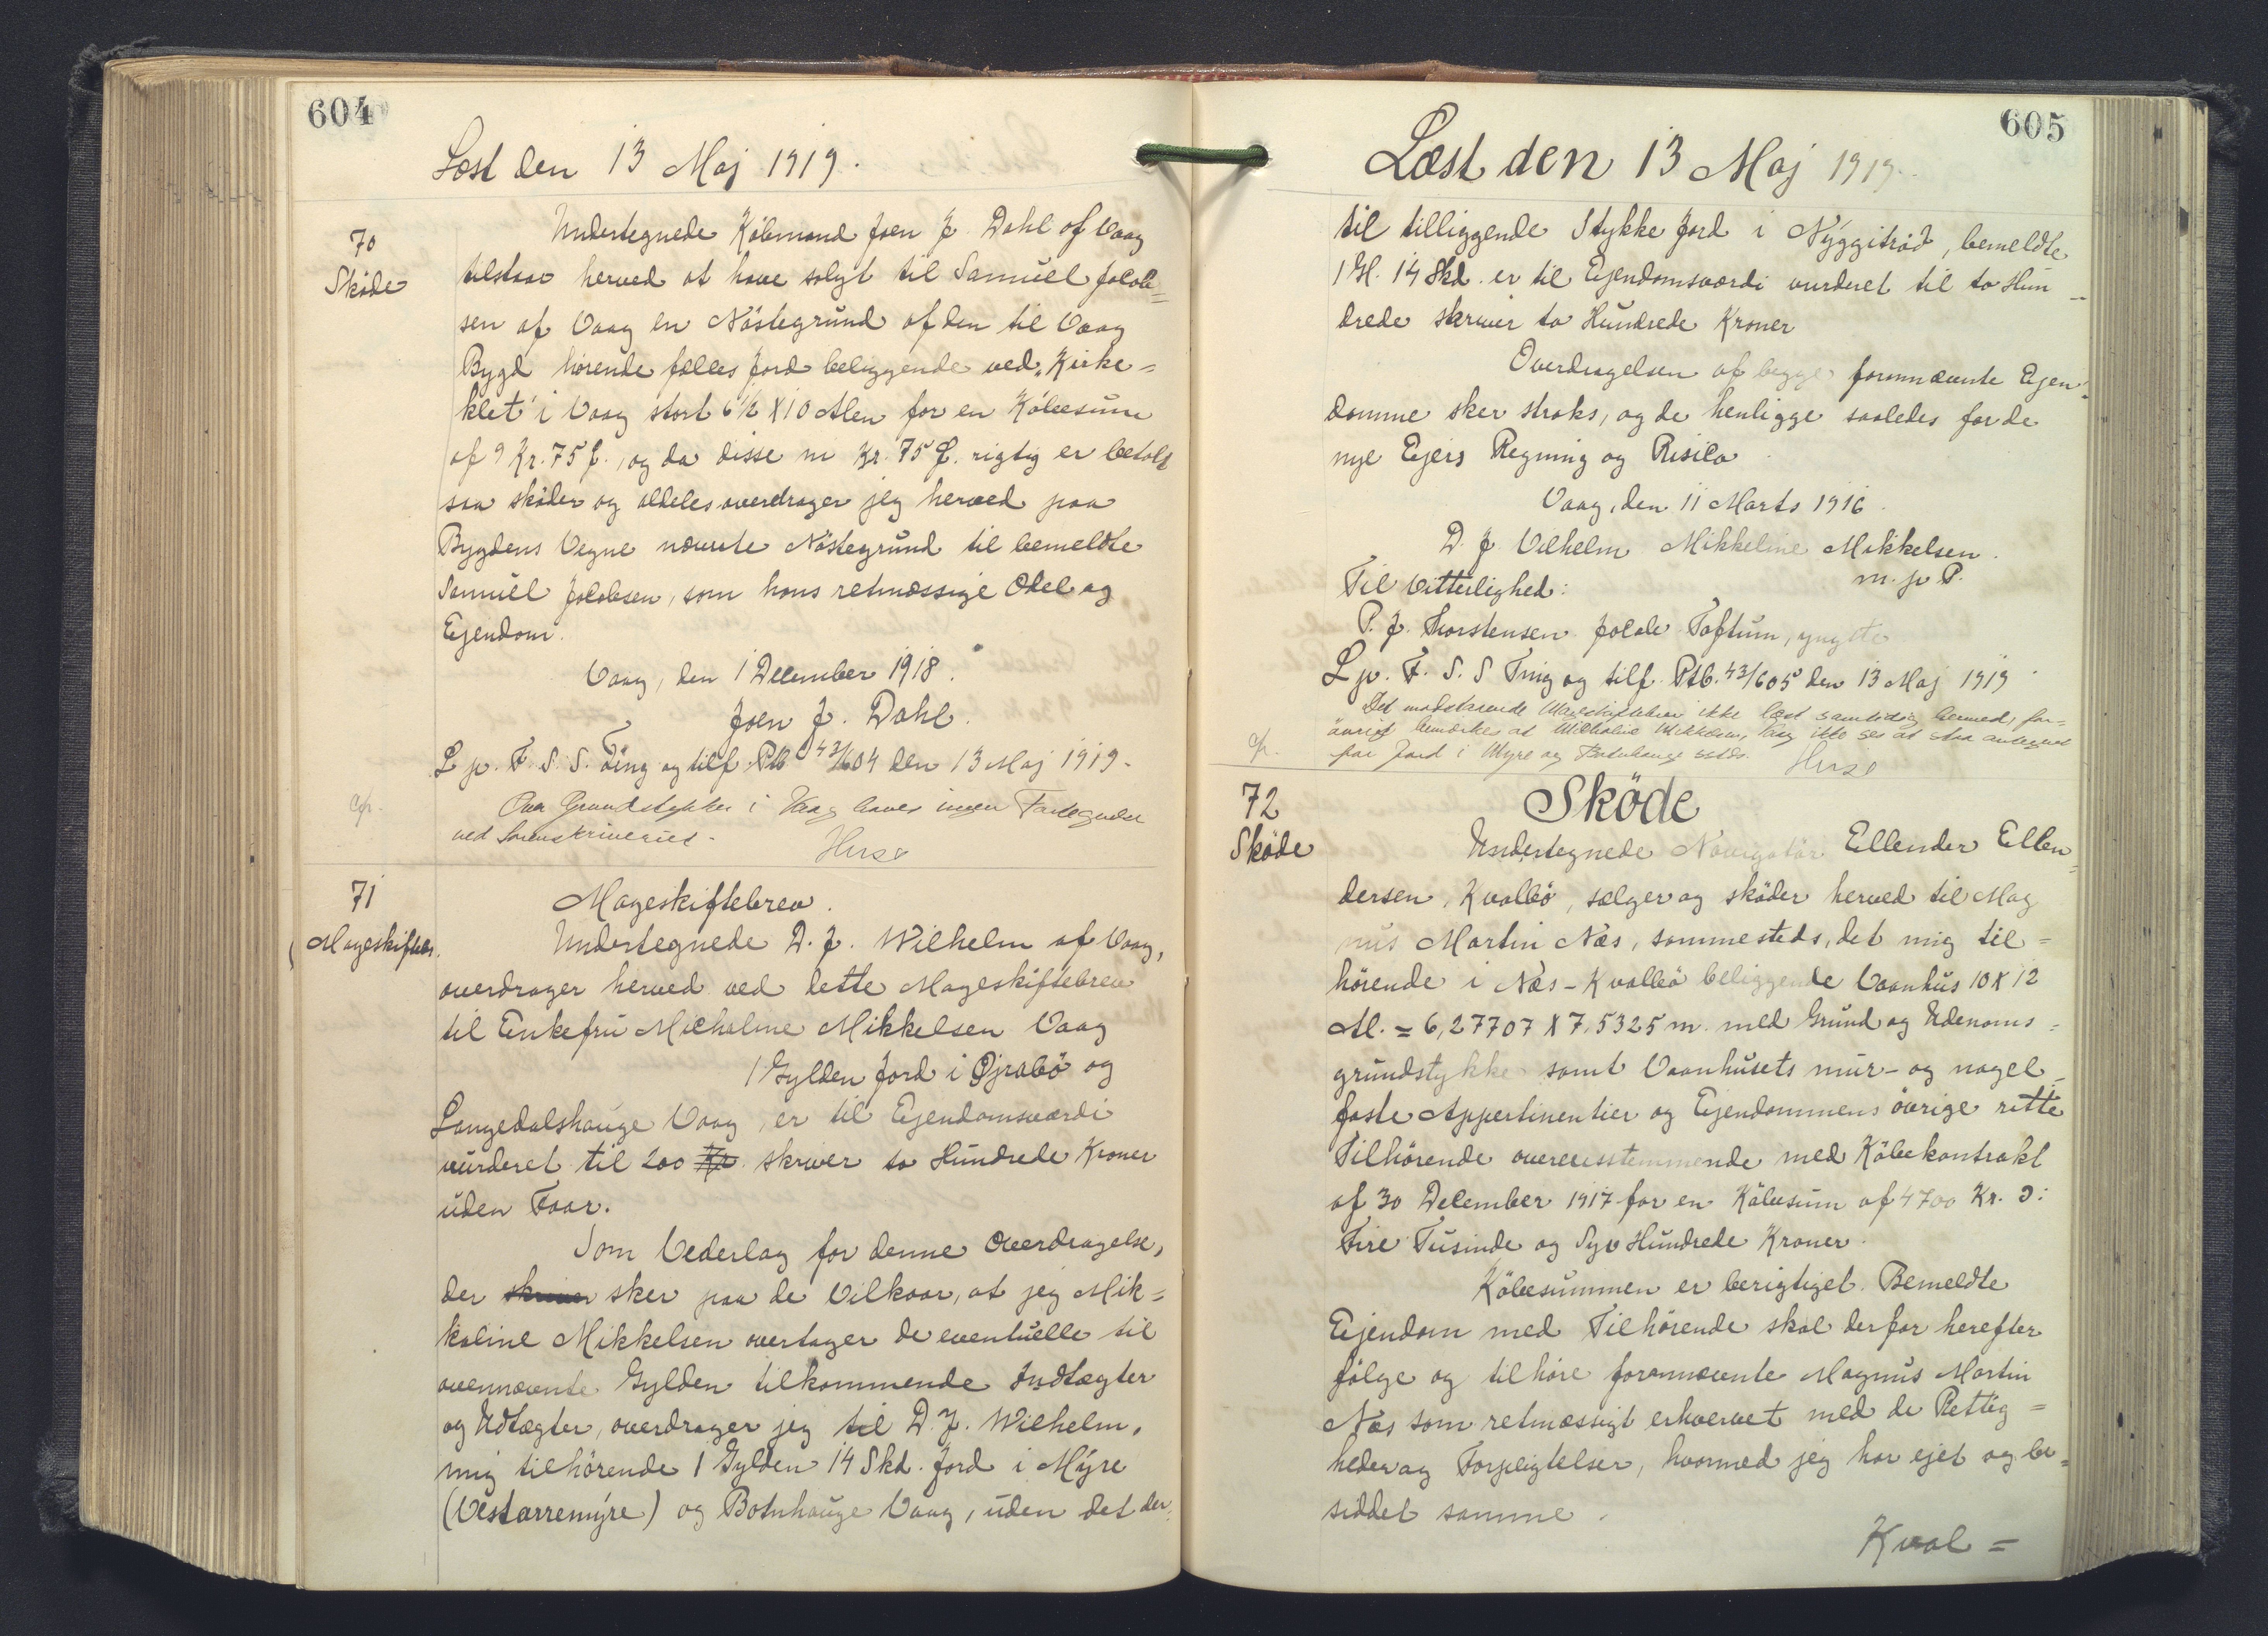 604
Læst den 13 Maj 1919.
70
Sköde
Undertegnede Köbmand Joen J. Dahl af Vaag
tilstaar herved at have solgt til Samuel Jacob=
sen af Vaag en Nöstegrund af den til Vaag
Bygd hörende fælles Jord beliggende ved "Kirke=
klet" i Vaag stort 6½ X 10 Alen for en Köbesum
af 9 Kr. 75 f., og da disse ni Kr. 75 f. rigtig er betalt
saa sköder og aldeles overdrager jeg herved paa
Bygdens Vegne nævnte Nöstegrund til bemeldte
Samuel Jacobsen, som hans retmæssige Odel og
Ejendom.
Vaag, den 1 December 1918.
Joen J. Dahl.
L p. F. S. S. Ting og tilf. Ptb 43/604 den 13 Maj 1919.
Over Grundstykker i Vaag haves ingen Fortegnelse
ved Sorenskriveriet.
71
Mageskiftebr.
Mageskiftebrev.
Undertegnede D. J. Wilhelm af Vaag,
overdrager herved ved dette Mageskiftebrev
til Enkefru Micholine Mikkelsen Vaag
1 Gylden Jord i Øjrabö og
Langedalshauge Vaag, er til Ejendomsværdi
vurderet til 200 Kr. skriver to Hundrede Kroner
uden Faar.
Som Vederlag for denne Overdragelse,
der skriver sker paa de Vilkaar, at jeg Mik=
koline Mikkelsen overtager de eventuelle til
ovennævnte Gylden tilkommende Indtægter
og Udtægter, overdrager jeg til D. J. Wilhelm,
mig tilhörende 1 Gylden 14 Skd. Jord i Mýre
(Vestarremýre) og Botnhauge Vaag, uden det der=
605
Læst den 13 Maj 1919.
til tilliggende Stykke Jord i Nýggitröð, bemeldte
1 Gl. 14 Skd. er til Ejendomsværdi vurderet til to Hun=
drede skriver to Hundrede Kroner
Overdragelsen af begge fornævnte Ejen=
domme sker straks, og de henligge saaledes for de
nye Ejers Regning og Risiko.
Vaag, den 11 Marts 1916.
D. J. Vilhelm Mikkeline Mikkelsen.
m. p. P.
Til Vitterlighed:
P. J. Thorstensen Jacob Toftum, yngste
L p. F. S. S Ting og tilf. Ptb. 43/605 den 13 Maj 1919
Det modstaaende Mageskiftebrev ikke læst samtidig hermed, for=
övrigt bemærkes at Micholine Mikkelsen, Vaag ikke ses at staa antegnet
for Jord i Myre og Botnhauge sstds.
72
Sköde
Sköde
Undertegnede Navigatör Ellender Ellen=
dersen, Kvalbö, sælger og sköder herved til Mag
nus Martin Næs, sammesteds, det mig til=
hörende i Næs-Kvalbö beliggende Vaanhus 10 X 12
Al. = 6,27707 X 7,5325 m. med Grund og Udenoms=
grundstykke samt Vaanhusets mur- og nagel=
faste Appertinentier og Ejendommens övrige rette
Tilhörende overensstemmende med Köbekontrakt
af 30 December 1917 for en Köbesum af 4700 Kr. ɔ:
Fire Tusinde og Syv Hundrede Kroner.
Köbesummen er berigtiget. Bemeldte
Ejendom med Tilhörende skal derfor herefter
fölge og tilhöre forannævnte Magnus Martin
Næs som retmæssigt erhvervet med de Rettig=
heder og Forpligtelser, hvormed jeg har ejet og be=
siddet samme.
Kval=